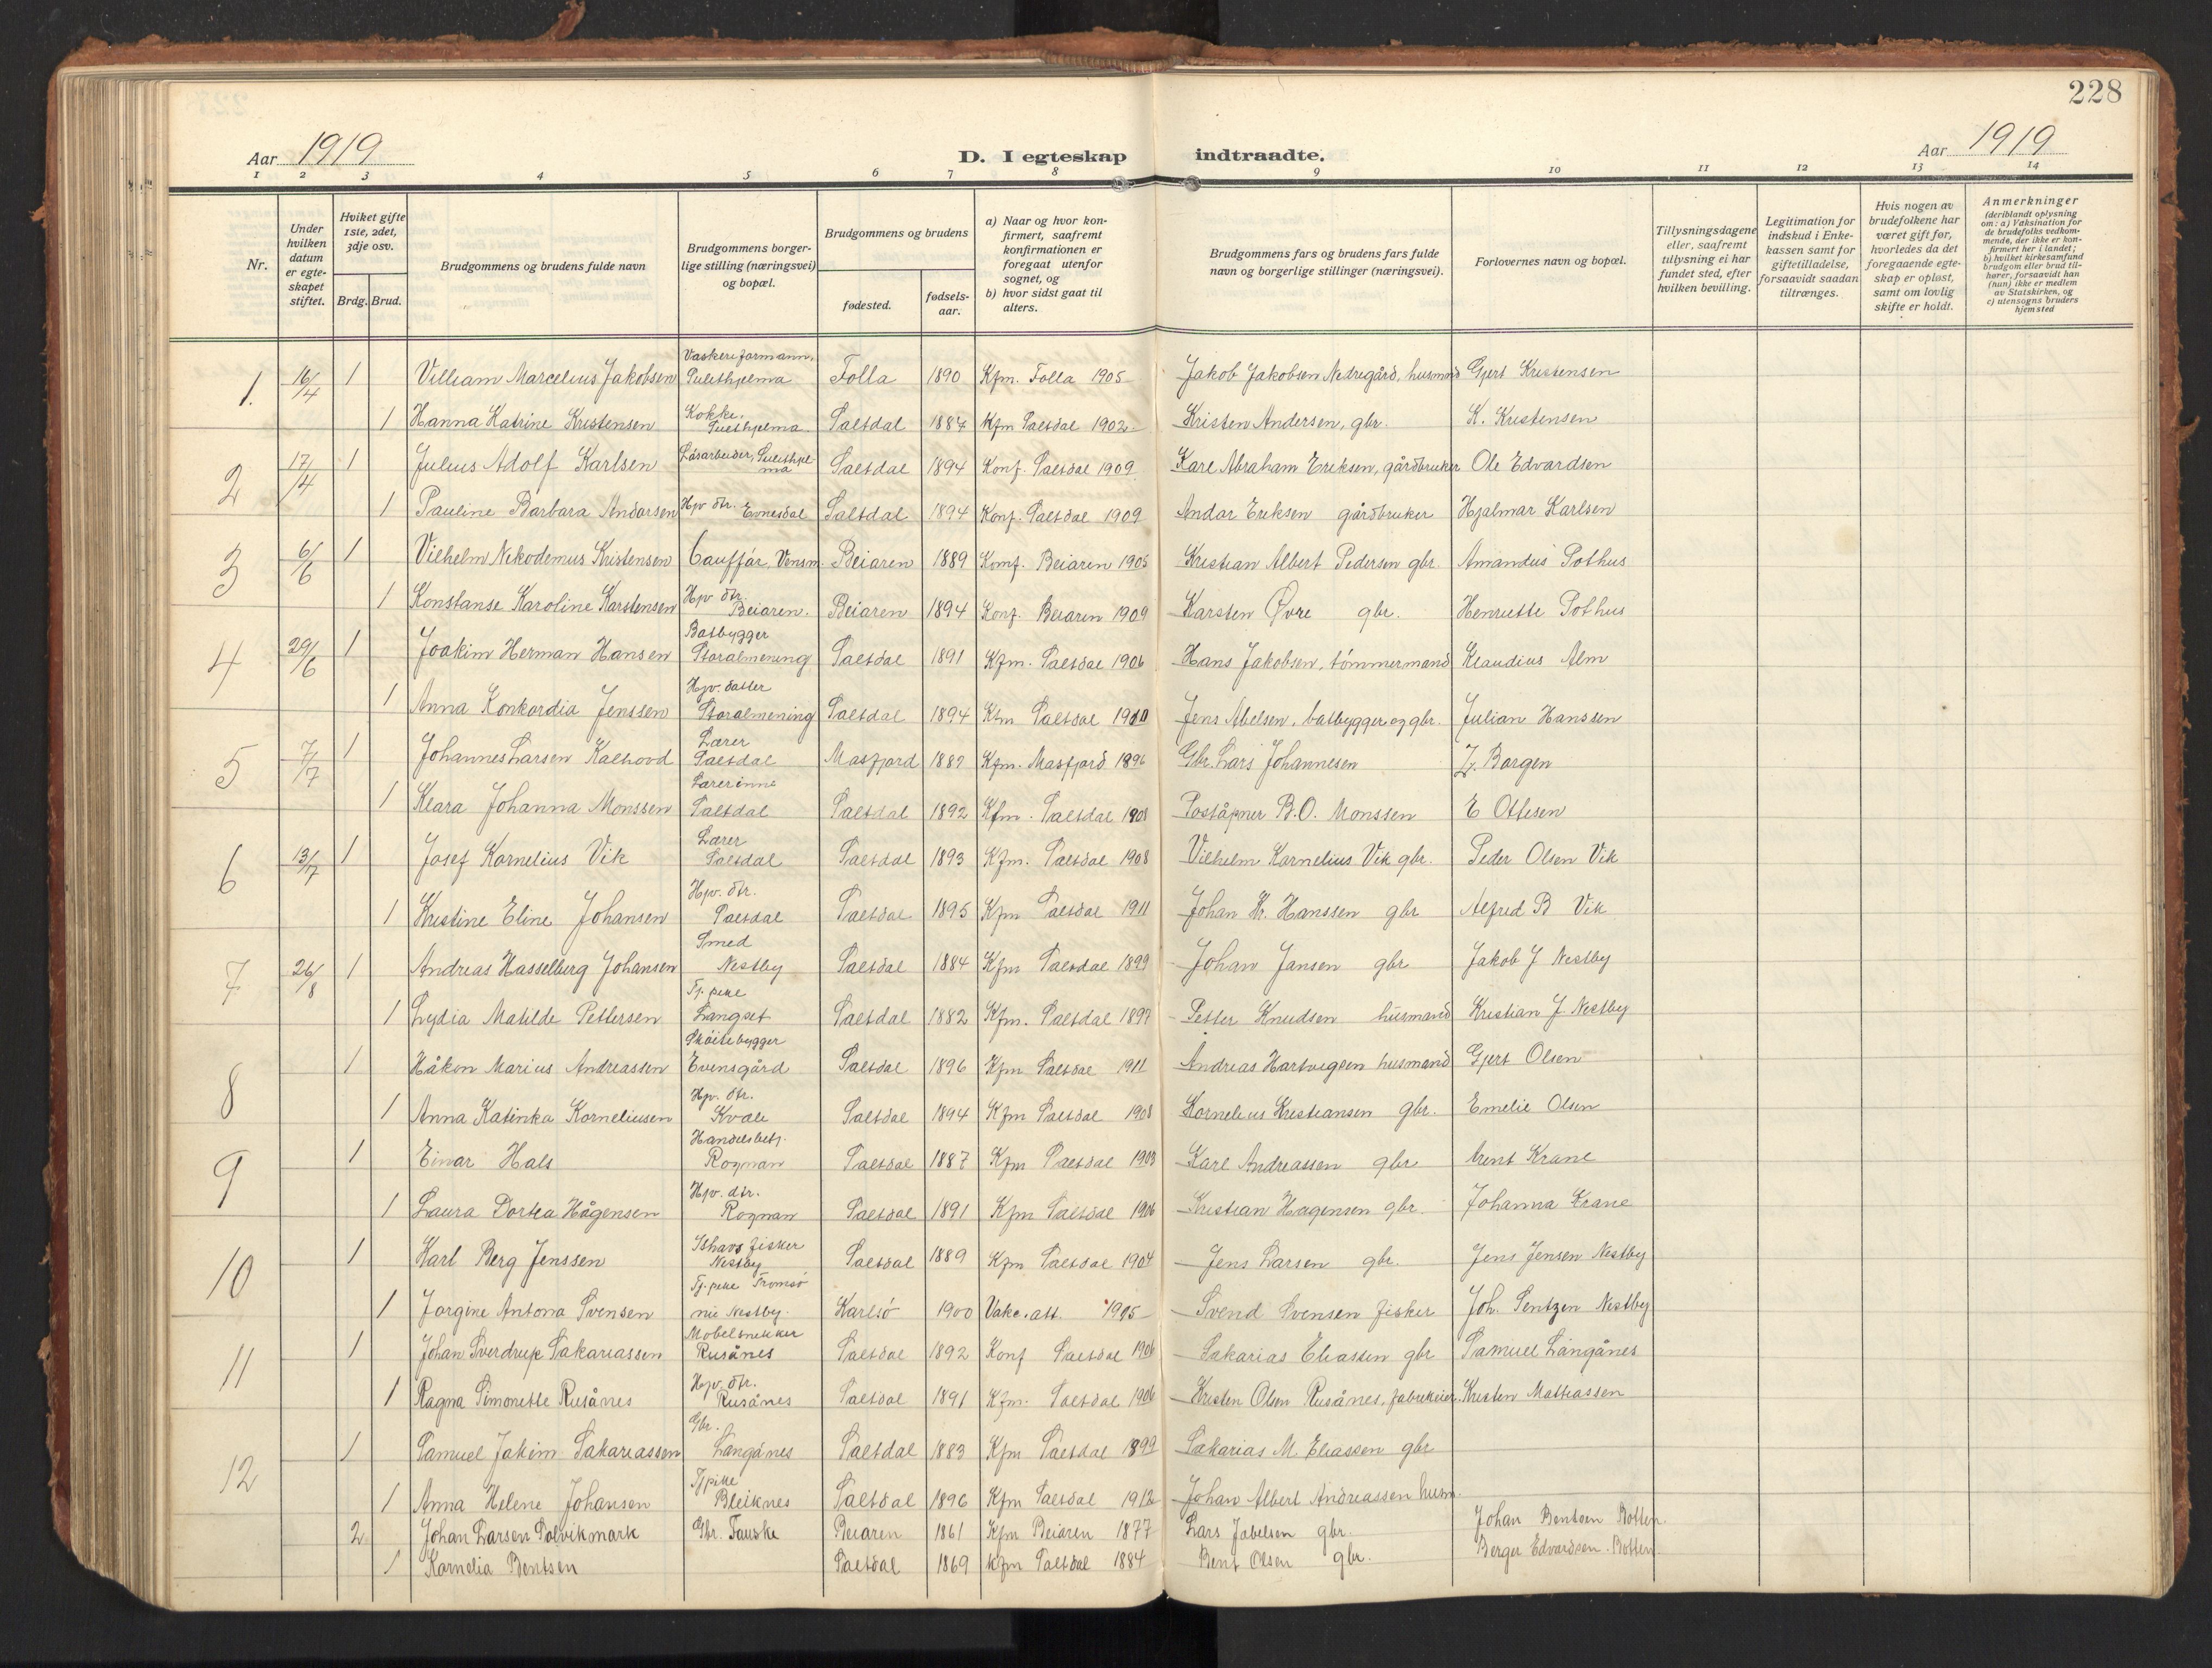 228
Aar 1919
D. I egteskap indtraadte.
Aar 1919
1 2 3 4 5 6 7 8 9 10 11 12 13 14
Nr.
Under hvilken datum er egteskapet stiftet.
Hviket gifte 1ste, 2det, 3dje osv.
Brdg. Brud.
Brudgommens og brudens fulde navn
Brudgommens borgerlige stilling (næringsvei) og bopæl.
Brudgommens og brudens
fødested.
fødselsaar.
a) Naar og hvor konfirmert, saafremt konfirmationen er foregaat utenfor sognet, og
b) hvor sidst gaat til alters.
Brudgommens fars og brudens fars fulde navn og borgerlige stillinger (næringsvei).
Forlovernes navn og bopæl.
Tillysningsdagene eller, saafremt tillysning ei har fundet sted, efter hvilken bevilling.
Legitimation for indskud i Enkekassen samt for giftetilladelse, forsaavidt saadan tiltrænges.
Hvis nogen av brudefolkene har været gift før, hvorledes da det foregaaende egteskap er opløst, samt om lovlig skifte er holdt.
Anmerkninger (deriblandt oplysning om: a) Vaksination for de brudefolks vedkommende, der ikke er konfirmert her i landet; b) hvilket kirkesamfund brudgom eller brud tilhører, forsaavidt han (hun) ikke er medlem av Statskirken, og c) utensogns bruders hjemsted
1. 16/4 1 Villiam Marcelius Jakobsen Vaskeriformann, Sulithjelma Folla 1890 Kfm. Folla 1905 Jakob Jakobsen Nedregård, husmand Gjert Kristensen
1 Hanna Katrine Kristensen Kokke. Sulithjelma Saltdal 1884 Kfm Saltdal 1902 Kristen Andersen, gbr. K. Kristensen
2 17/4 1 Julius Adolf Karlsen Løsarbeider, Sulithjelma Saltdal 1894 Konf. Saltdal 1909 Karl Abraham Eriksen, gårdbruker Ole Edvardsen
1 Pauline Barbara Andorsen Hjv dtr. Evnesdal Saltdal 1894 Konf. Saltdal 1909 Andor Eriksen gårdbruker Hjalmar Karlsen
3 6/6 1 Vilhelm Nikodemus Kristensen Cauffør, Vensm. Beiaren 1889 Komf. Beiaren 1905 Kristian Albert Pedersen gbr. Amandus Pothus
1 Konstanse Karoline Karstensen Hjv dtr. Beiaren. Beiaren 1894 Konf. Beiaren 1909 Karsten Øvre gbr. Henriette Pothus
4 29/6 1 Joakim Herman Hansen Båtbygger Storalmening Saltdal 1891 Kfm. Saltdal 1906 Hans Jakobsen, tømmermand Klaudius Alm
1 Anna Konkordia Jenssen Hjv. datter Storalmening Saltdal 1894 Kfm Saltdal 1910 Jens Abelsen, båtbygger og gbr. Julian Hanssen
5 7/7 1 Johannes Larsen Kalhovd Lærer Saltdal Masfjord 1882 Kfm. Masfjord 1896 Gbr. Lars Johannesen J. Borgen
1 Klara Johanna Monssen Lærerinne Saltdal Saltdal 1892 Kfm. Saltdal 1908 Poståpner B.O. Monssen E Ottesen
6 13/7 1 Josef Kornelius Vik Lærer Saltdal Saltdal 1893 Kfm. Saltdal 1908 Vilhelm Kornelius Vik gbr. Peder Olsen Vik
1 Kristine Eline Johansen Hjv. dtr. Saltdal Saltdal 1895 Kfm Saltdal 1911 Johan Kr. Hanssen gbr Alfred B Vik
7 26/8 1 Andreas Hasselberg Johansen Smed Nestby Saltdal 1884 Kfm Saltdal 1899 Johan Jansen gbr Jakob J Nestby
1 Lydia Matilde Pettersen Tj. pike Langset Saltdal 1882 Kfm. Saltdal 1897 Petter Knudsen husmand Kristian J Nestby
8 1 Håkon Marius Andreassen Skøitebygger Evensgård Saltdal 1896 Kfm Saltdal 1911 Andreas Hartvigsen husmand Gjert Olsen
1 Anna Katinka Korneliusen Hjv. dtr. Kvale Saltdal 1894 Kfm Saltdal 1908 Kornelius Kristiansen gbr. Emelie Olsen
9 1 Einar Hals Handelsbetj. Rognan Saltdal 1887 Kfm Saltdal 1903 Karl Andreassen gbr Arent Krane
1 Laura Dortea Hågensen Hjv. dtr. Rognan Saltdal 1891 Kfm Saltdal 1906 Kristian Hagensen gbr. Johanna Krane
10 1 Karl Berg Jenssen Ishavsfisker Nestby Saltdal 1889 Kfm Saltdal 1904 Jens Larsen gbr. Jens Jensen Nestby
1 Jorgine Antona Svensen Tj. pike Tromsø nu Nestby. Karlsø 1900 Vakc. att. 1905 Svend Svensen fisker Joh. Sentzen Nestby
11 1 Johan Sverdrup Sakariassen Møbelsnekker Rusånes Saltdal 1892 Konf Saltdal 1906 Sakarias Eliassen gbr Samuel Langånes
1 Ragna Simonette Rusånes Hjv. dtr. Rusånes Saltdal 1891 Kfm. Saltdal 1906 Kristen Olsen Rusånes, fabrikeier. Kristen Mattiassen
12 1 Samuel Jakim Sakariassen Gbr. Langånes Saltdal 1883 Kfm Saltdal 1899 Sakarias M Eliassen gbr
1 Anna Helene Johansen Tjpike Bleiknes Saltdal 1896 Kfm Saltdal 1912 Johan Albert Andreassen husm.
2 Johan Larsen Solvikmark Gbr. Fauske Beiaren 1861 Kfm Beiaren 1877 Lars Jabelsen gbr. Johan Bentsen Botten.
1 Kornelia Bentsen Saltdal 1869 Kfm Saltdal 1884 Bent Olsen gbr. Berger Edvardsen. Botten.